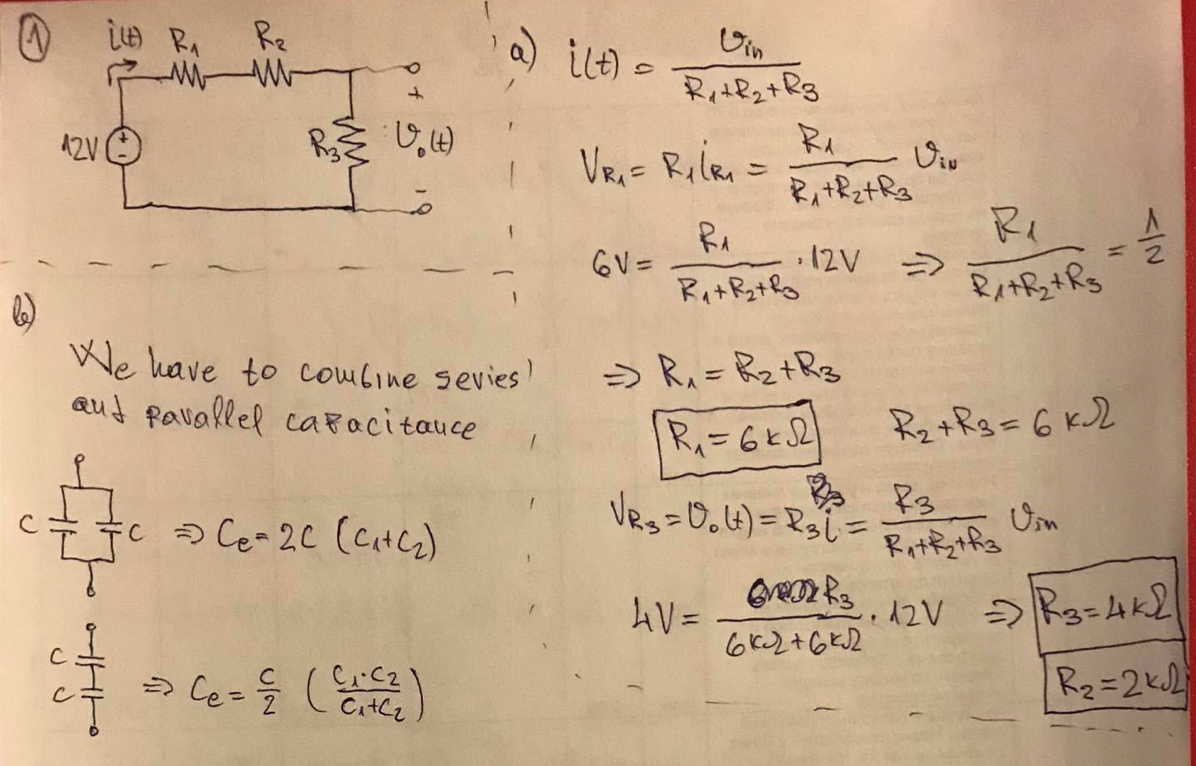 1
i(t) R₁ R₂
12V
R₃ V₀(t)
+
-
a) i(t) = Vin / (R₁+R₂+R₃)
VR₁ = R₁iR₁ = R₁ / (R₁+R₂+R₃) Vin
6V = R₁ / (R₁+R₂+R₃) · 12V => R₁ / (R₁+R₂+R₃) = 1/2
=> R₁ = R₂+R₃
R₁ = 6kΩ R₂+R₃ = 6 kΩ
VR₃ = V₀(t) = R₃i = R₃ / (R₁+R₂+R₃) Vin
4V = R₃ / (6kΩ+6kΩ) · 12V => R₃ = 4kΩ
R₂ = 2kΩ
b)
We have to combine series
and parallel capacitance
C C => Ce = 2C (C₁+C₂)
C
C => Ce = C/2 (C₁·C₂ / (C₁+C₂))